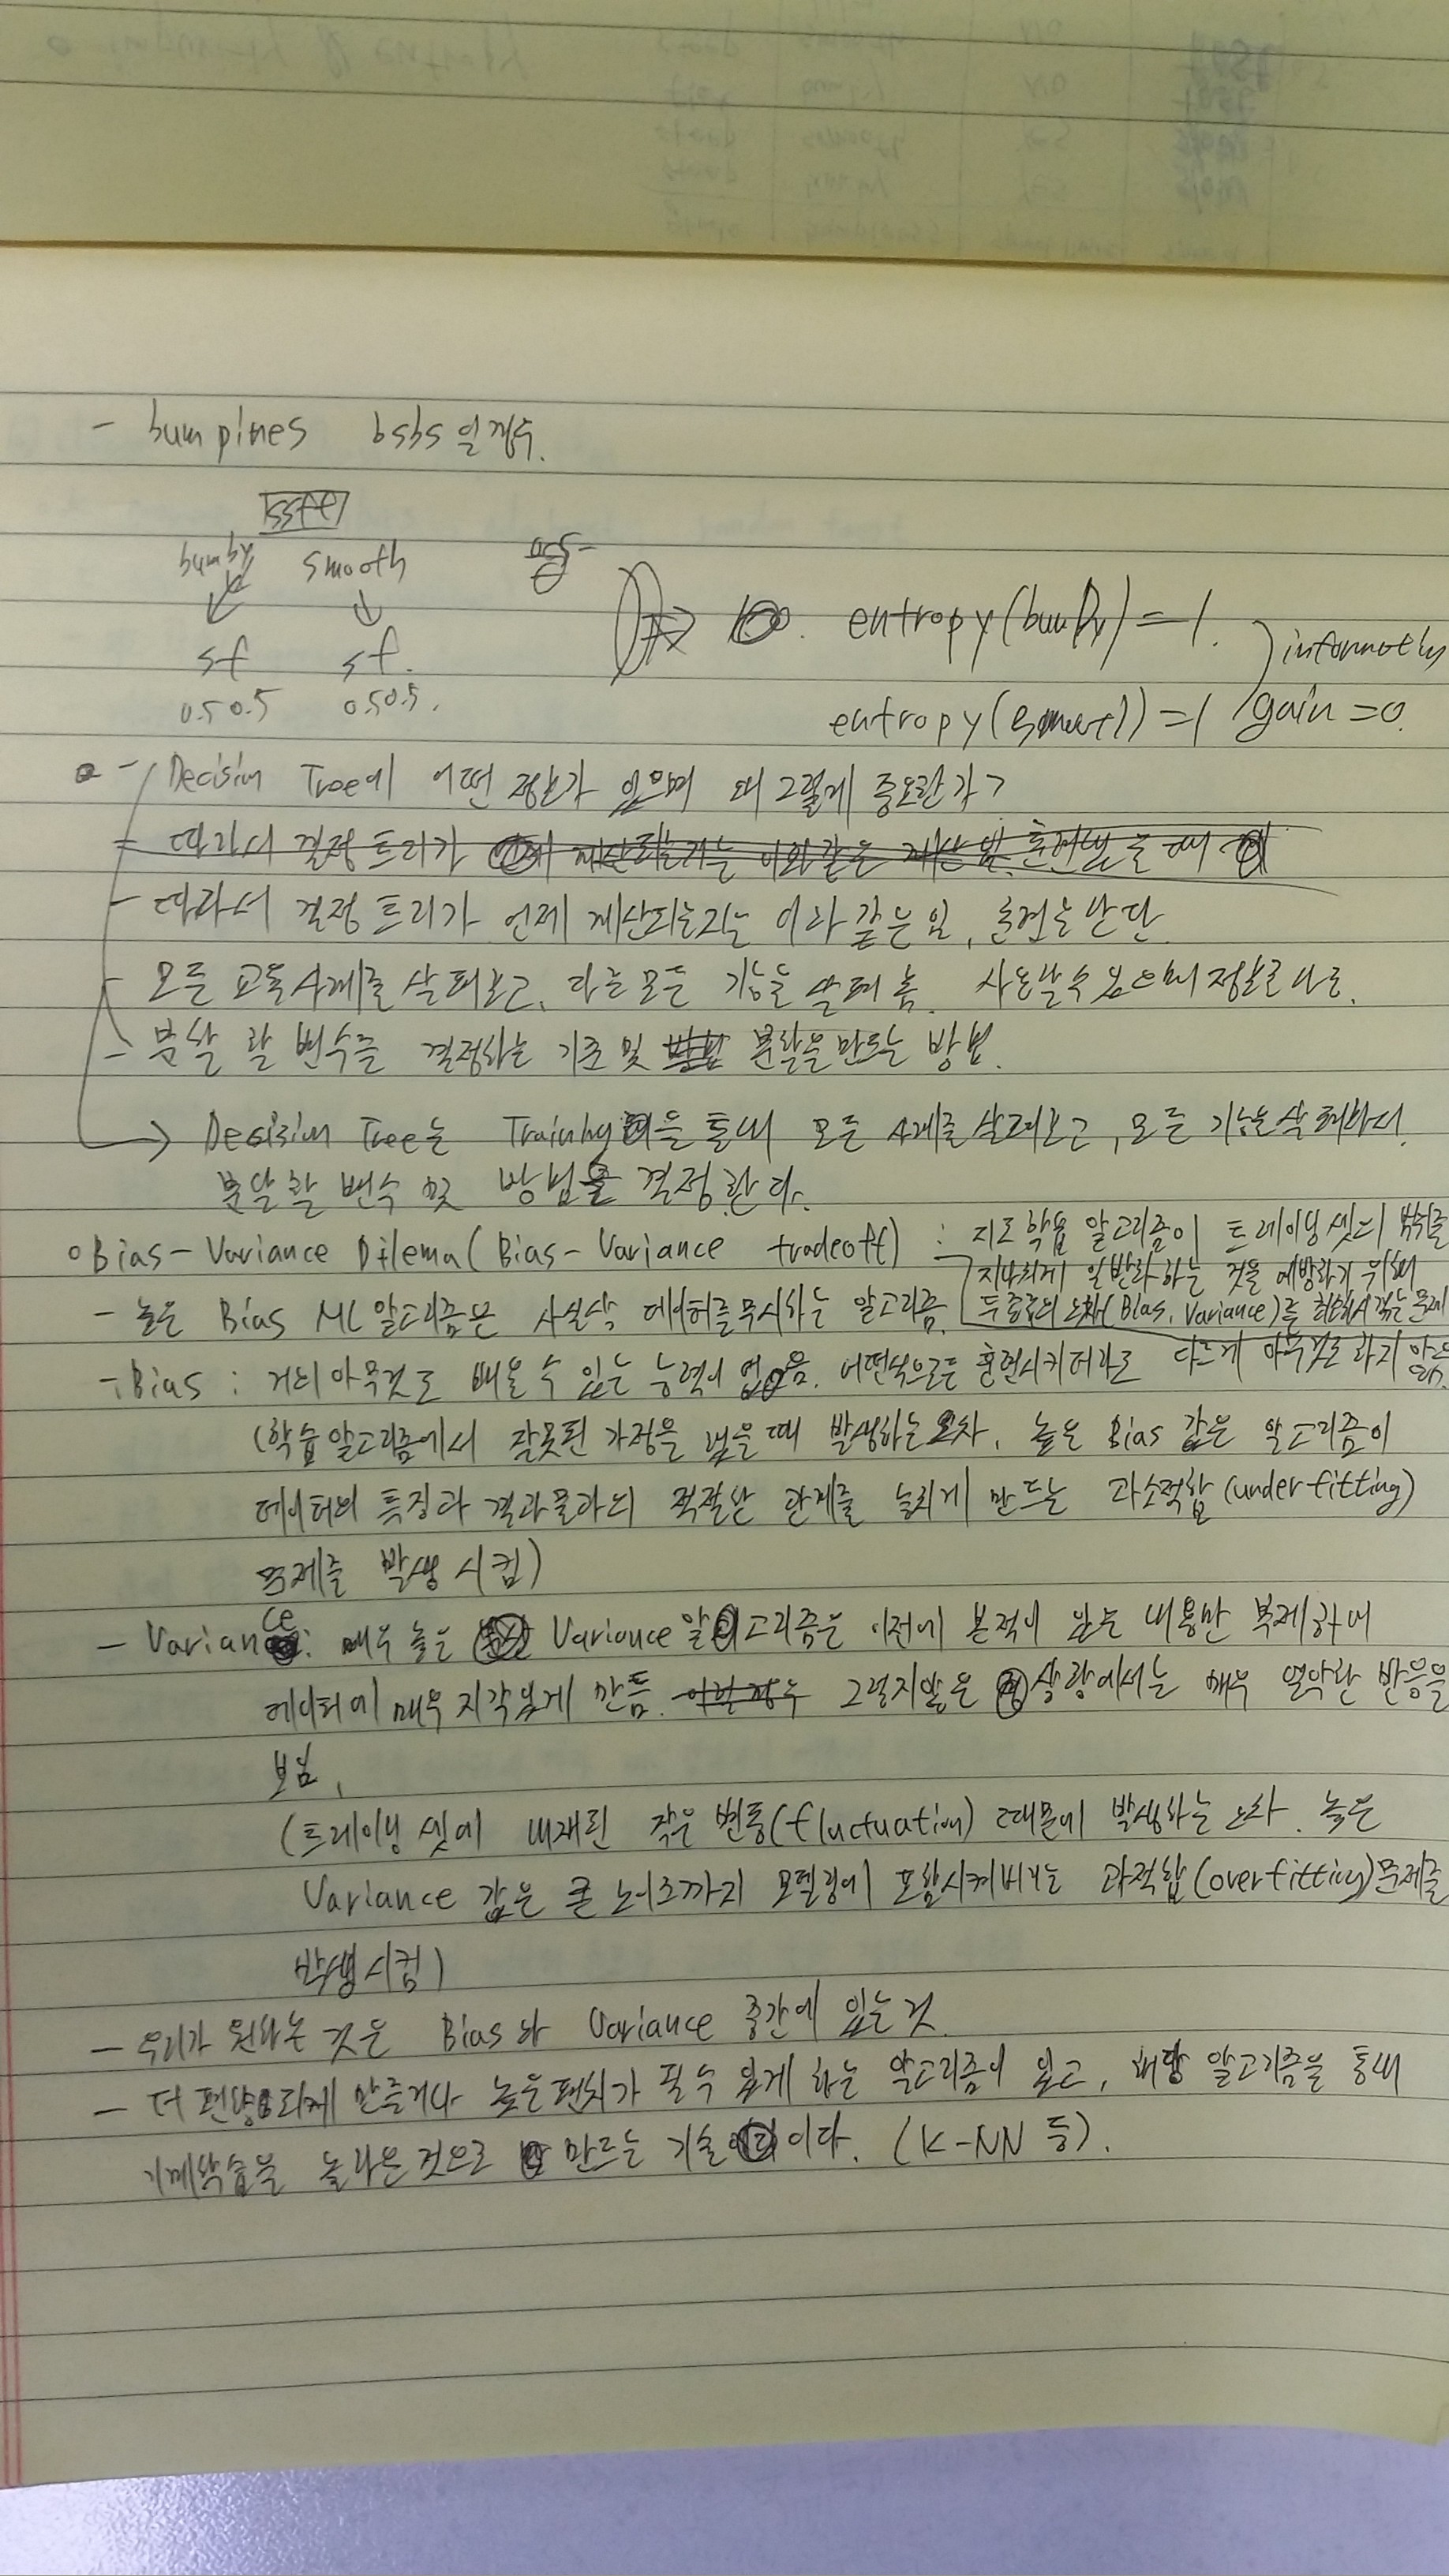 - bumpines bsbs 일 경우.
ssff
bumby smooth
sf sf.
0.5 0.5 0.5 0.5.
entropy(bumpy) = 1.
entropy(smooth) = 1
gain = 0.
- Decision Tree에 어떤 정보가 있으며 왜 그렇게 중요한가?
- 따라서 결정 트리가
- 따라서 결정 트리가 언제 계산되는지는 이와 같은 일, 훈련을 한다.
- 모든 교육 사례를 살펴보고, 다른 모든 기능을 살펴 봄. 사용할 수 있으며 정보로 나눔.
- 분할 할 변수를 결정하는 기준 및 분할을 만드는 방법.
→ Decision Tree는 Training을 통해 모든 사례를 살펴보고, 모든 기능을 살펴봐서
분할 할 변수 및 방법을 결정한다.
○ Bias-Variance Dilema(Bias-Variance tradeoff) : 지도학습 알고리즘이 트레이닝 셋의 범위를
지나치게 일반화하는 것을 예방하기 위해
두 종류의 오차(Bias, Variance)를 최소화 시키는 문제
- 높은 Bias ML 알고리즘은 사실상 데이터를 무시하는 알고리즘.
- Bias : 거의 아무것도 배울 수 있는 능력이 없음. 어떤식으로든 훈련시키더라도 다르게 아무것도 하지 않는다.
(학습 알고리즘에서 잘못된 가정을 했을 때 발생하는 오차. 높은 Bias 값은 알고리즘이
데이터의 특징과 결과물과의 적절한 관계를 놓치게 만드는 과소적합(underfitting)
문제를 발생 시킴)
- Variance: 매우 높은 Variance 알고리즘은 이전에 본적이 있는 내용만 복제하며
데이터에 매우 지각있게 만듬. 그렇지않은 상황에서는 매우 열악한 반응을
보임.
(트레이닝 셋에 내재된 작은 변동(fluctuation) 때문에 발생하는 오차. 높은
Variance 값은 큰 노이즈까지 모델링에 포함시켜버리는 과적합(overfitting)문제를
발생시킴)
- 우리가 원하는 것은 Bias와 Variance 중간에 있는 것.
- 더 편향되게 만들거나 높은 편차가 필수 있게 하는 알고리즘이 있고, 해당 알고리즘을 통해
기계학습을 놀라운 것으로 만드는 기술이다. (K-NN 등).